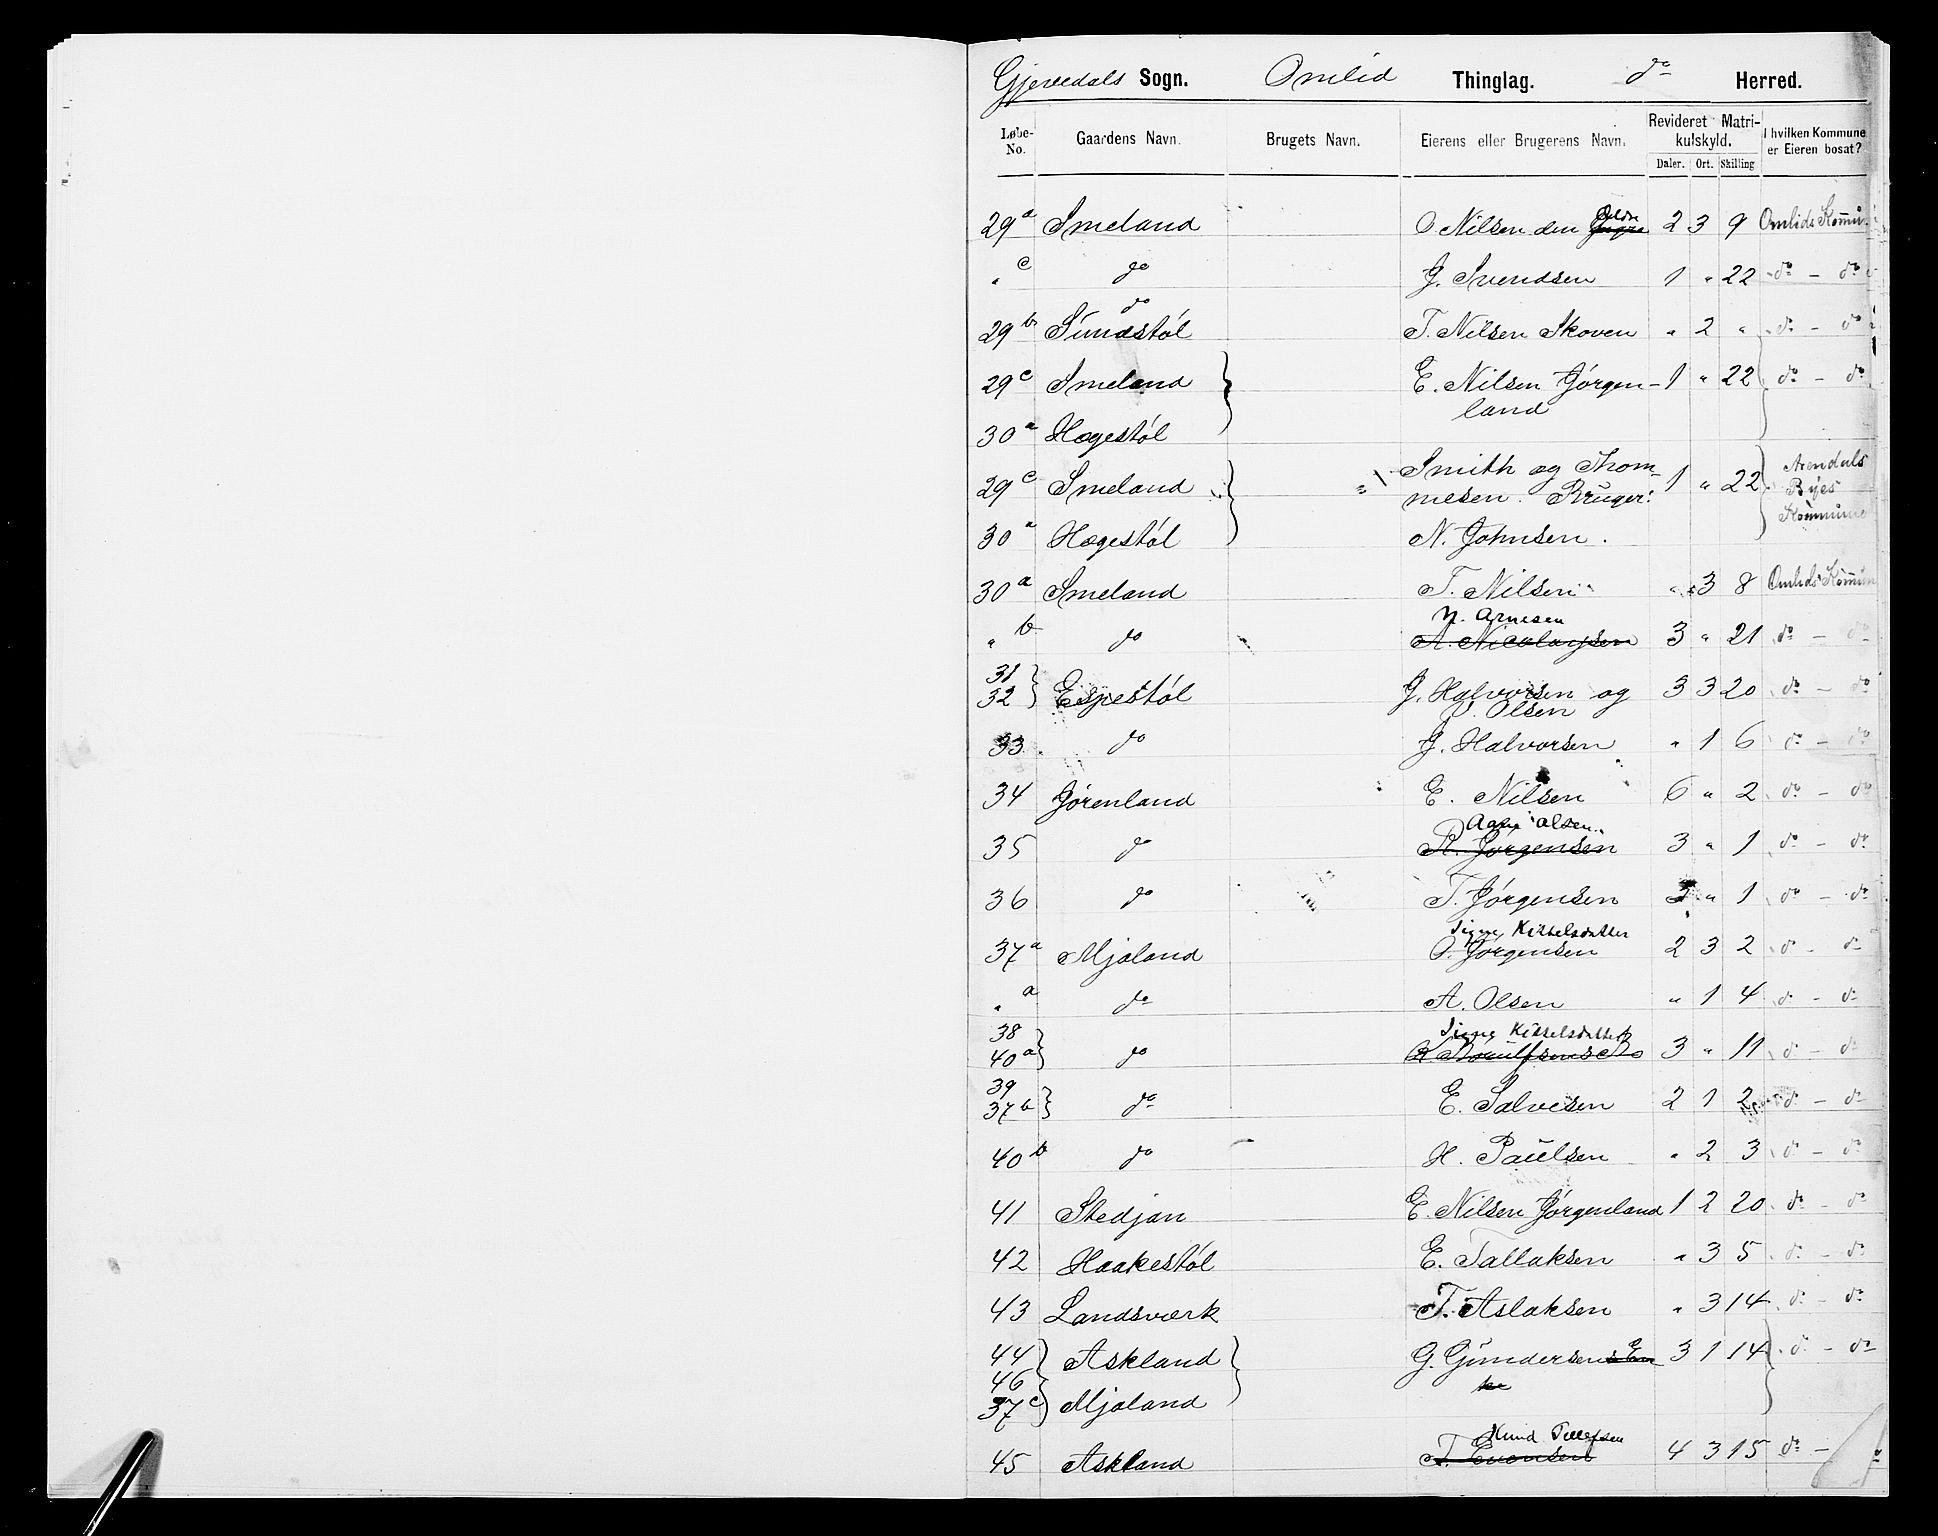 Gjevedals Sogn. Omlid Thinglag. do Herred.
Løbe-No. Gaardens Navn. Brugets Navn. Eierens eller Brugerens Navn. Revideret Matrikulskyld. Daler. Ort. Skilling I hvilken Kommune er Eieren bosat?
29a Smeland O Nilsen den Yngre Ældre 2 3 9 Omlids Kommu.
" c do G. Svendsen 1 " 22 do - do
do
29b Sundstøl T. Nilsen Skoven " 2 " do - do
29c Smeland } E. Nilsen Jørgen- 1 " 22 do - do
land
30a Hægestøl
29c Smeland } Smith og Thommesen. Bruger: 1 " 22 Arendals Byes Kommune
30a Hægestøl N. Johnsen.
30a Smeland T. Nilsen " 3 8 Omlids Kommun
N. Arnesen
" b do A. Nicolaysen 3 " 21 do - do
31
32 } Espestøl J. Halvorsen og 3 3 20 do - do
O. Olsen
33 do J. Halvorsen " 1 6 do - do
34 Jørenland E. Nilsen 6 " 2 do - do
Olsen
35 do Jørgensen 3 " 1 do - do
36 do T. Jørgensen 3 " 1 do - do
Signe Kittelsdatter
37a Mjaland O. Jørgensen 2 3 2 do - do
" a do A. Olsen " 1 4 do - do
38 Signe Kittelsdatter
40a } do 3 " 11 do - do
39
37b } do E. Salvesen 2 1 2 do - do
40b do H. Paulsen " 2 3 do - do
41 Stedjan E. Nilsen Jørgenland 1 2 20 do - do
42 Haakestøl E. Tallaksen " 3 5 do - do
43 Landsværk T. Aslaksen " 3 14 do - do
44 } Askland } G. Gundersens En 3 1 14 do - do
46 ke
37c Mjaland
Knud Tellefsen
45 Askland T. Evensen 4 3 15 do -